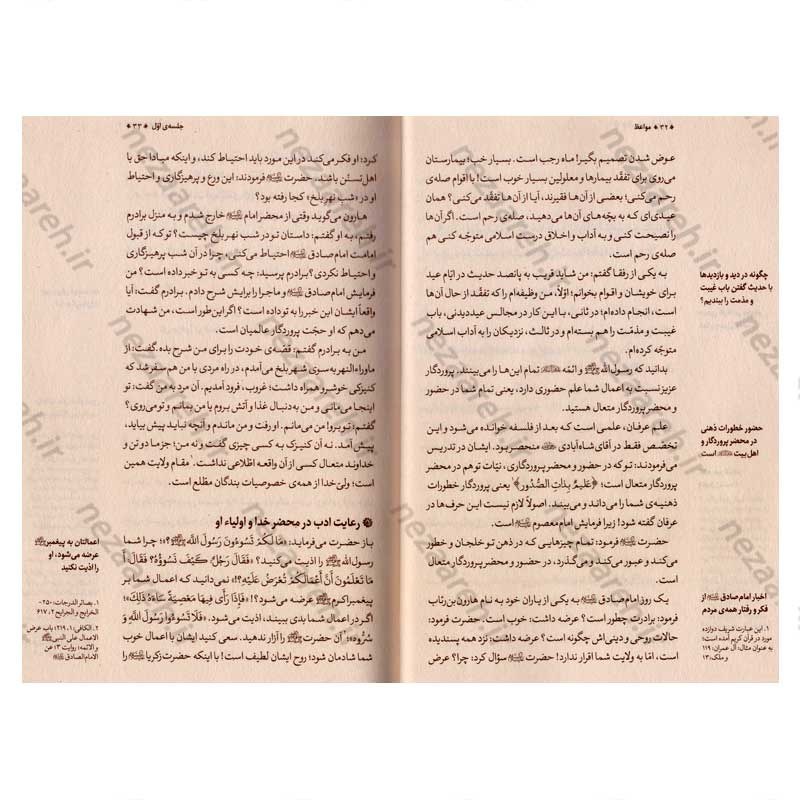 ۳۲ * مواعظ
عوض شدن تصمیم بگیر! ماه رجب است. بسیار خب؛ بیمارستان
می‌روی برای تفقّد بیمارها و معلولین بسیار خوب است! با اقوام صله‌ی
رحم می‌کنی؛ بعضی از آن‌ها فقیرند، آیا از آن‌ها تفقّد می‌کنی؟ همان
عیدی‌ای که به بچّه‌های آن‌ها می‌دهید، صله‌ی رحم است. اگر آن‌ها
را نصیحت کنی و به آداب و اخلاق درست اسلامی متوجّه کنی هم
صله‌ی رحم است.
چگونه در دید و بازدیدها
با حدیث گفتن باب غیبت
و مذمت را ببندیم؟
به یکی از رفقا گفتم: من شاید قریب به پانصد حدیث در ایّام عید
برای خویشان و اقوام بخوانم؛ اوّلاً، من وظیفه‌ام را که تفقّد از حال آن‌ها
است، انجام داده‌ام؛ در ثانی، با این کار در مجالس عیددیدنی، باب
غیبت و مذمّت را هم بسته‌ام و در ثالث، نزدیکان را به آداب اسلامی
متوجّه کرده‌ام.
بدانید که رسول الله ﷺ و ائمّه تمام این‌ها را می‌بینند. پروردگار
عزیز نسبت به اعمال شما علم حضوری دارد، یعنی تمام شما در حضور
و محضر پروردگار متعال هستید.
حضور خطورات ذهنی
در محضر پروردگار و
اهل بیت است
علم عرفان، علمی است که بعد از فلسفه خوانده می‌شود و این
تخصّص فقط در آقای شاه‌آبادی منحصر بود. ایشان در تدریس
می‌فرمودند: تو که در حضور و محضر پروردگاری، نیّات تو هم در محضر
پروردگار متعال است؛ ﴿عَلیمٌ بِذاتِ الصُّدُور﴾¹ یعنی پروردگار خطورات
ذهنیه‌ی شما را می‌داند و می‌بیند. اصولاً لازم نیست این حرف‌ها در
عرفان گفته شود! زیرا فرمایش امام معصوم است.
حضرت فرمود: تمام چیزهایی که در ذهن تو خلجان و خطور
می‌کند و عبور می‌کند و می‌آید، در حضور و محضر پروردگار متعال
است.
اخبار امام صادق از
فکر و رفتار همه‌ی مردم
یک روز امام صادق به یکی از یاران خود به نام هارون بن رئاب
فرمود: برادرت چطور است؟ عرض کرد: خوب است. حضرت فرمود:
حالات روحی و دینی‌اش چگونه است؟ عرضه داشت: نزد همه پسندیده
است، امّا به ولایت شما اقرار ندارد! حضرت سؤال کرد: چرا؟ عرض
۱. این عبارت شریف دوازده
مورد در قرآن کریم آمده است؛
به عنوان مثال: آل عمران: ۱۱۹
و ملک: ۱۳
جلسه‌ی اوّل * ۳۳
کرد: او فکر می‌کند در این مورد باید احتیاط کند، و اینکه مبادا حق با
اهل تسنّن باشد. حضرت فرمودند: این ورع و پرهیزگاری و احتیاط
او در «شب نهر بلخ»، کجا رفته بود؟
هارون می‌گوید وقتی از محضر امام خارج شدم و به منزل برادرم
رفتم، به او گفتم: داستان تو در شب نهر بلخ چیست؟ تو که از قبول
امامت امام صادق احتیاط می‌کنی، چرا در آن شب پرهیزگاری
و احتیاط نکردی؟ برادرم پرسید: چه کسی به تو خبر داده است؟ من
فرمایش امام صادق و ماجرا را برایش شرح دادم. برادرم گفت: آیا
واقعاً ایشان این خبر را به تو داده است؟ اگر این‌طور است، من شهادت
می‌دهم که او حجّت پروردگار عالمیان است.
من به برادرم گفتم: قصّه‌ی خودت را برای من شرح بده. گفت: از
ماوراءالنهر به سوی شهر بلخ می‌آمدم، در راه مردی با من هم سفر شد که
کنیزکی خوشرو همراه داشت؛ غروب، فرود آمدیم. آن مرد به من گفت: تو
اینجا می‌مانی و من به دنبال غذا و آتش بروم یا من بمانم و تو می‌روی؟
گفتم: تو برو! من می‌مانم. او رفت و من ماندم و آنچه نباید پیش بیاید،
پیش آمد. نه آن کنیزک به کسی چیزی گفت و نه من؛ جز ما دو تن و
خداوند متعال کسی از آن واقعه اطّلاعی نداشت.¹ مقام ولایت همین
است؛ ولیّ خدا از همه‌ی خصوصیات بندگان مطلع است.
رعایت ادب در محضر خدا و اولیاء او
اعمالتان به پیغمبر ﷺ
عرضه می‌شود، او
را اذیت نکنید
باز حضرت می‌فرماید: «مَا لَكُمْ تَسُوءُونَ رَسُولَ اللَّهِ ﷺ؟»؛ چرا شما
رسول الله ﷺ را اذیت می‌کنید؟ «فَقَالَ رَجُلٌ: كَيْفَ نَسُوؤُهُ؟ فَقَالَ أَ
مَا تَعْلَمُونَ أَنَّ أَعْمَالَكُمْ تُعْرَضُ عَلَيْهِ؟!» نمی‌دانید که اعمال شما بر
پیغمبر اکرم ﷺ عرضه می‌شود؟! «فَإِذَا رَأَى فِيهَا مَعْصِيَةً سَاءَهُ ذَلِكَ»؛
اگر در اعمال شما بدی ببیند، اذیت می‌شود. «فَلَا تَسُوءُوا رَسُولَ اللَّهِ وَ
سُرُّوهُ»² آن حضرت ﷺ را آزار ندهید. سعی کنید ایشان با اعمال خوب
شما شادمان شود؛ روح ایشان لطیف است! با اینکه حضرت زکریا را
۱. بصائر الدرجات: ۲۵۰-
الخرایج و الجرایح ۲، ۶۱۷
۲. الکافی: ۱، ۲۱۹؛ باب عرض
الاعمال علی النبی ﷺ
و الائمه؛ روایت ۳؛ عن
الامام الصادق
nezaareh.ir